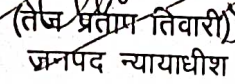 (तेज प्रताप तिवारी)
जनपद न्यायाधीश